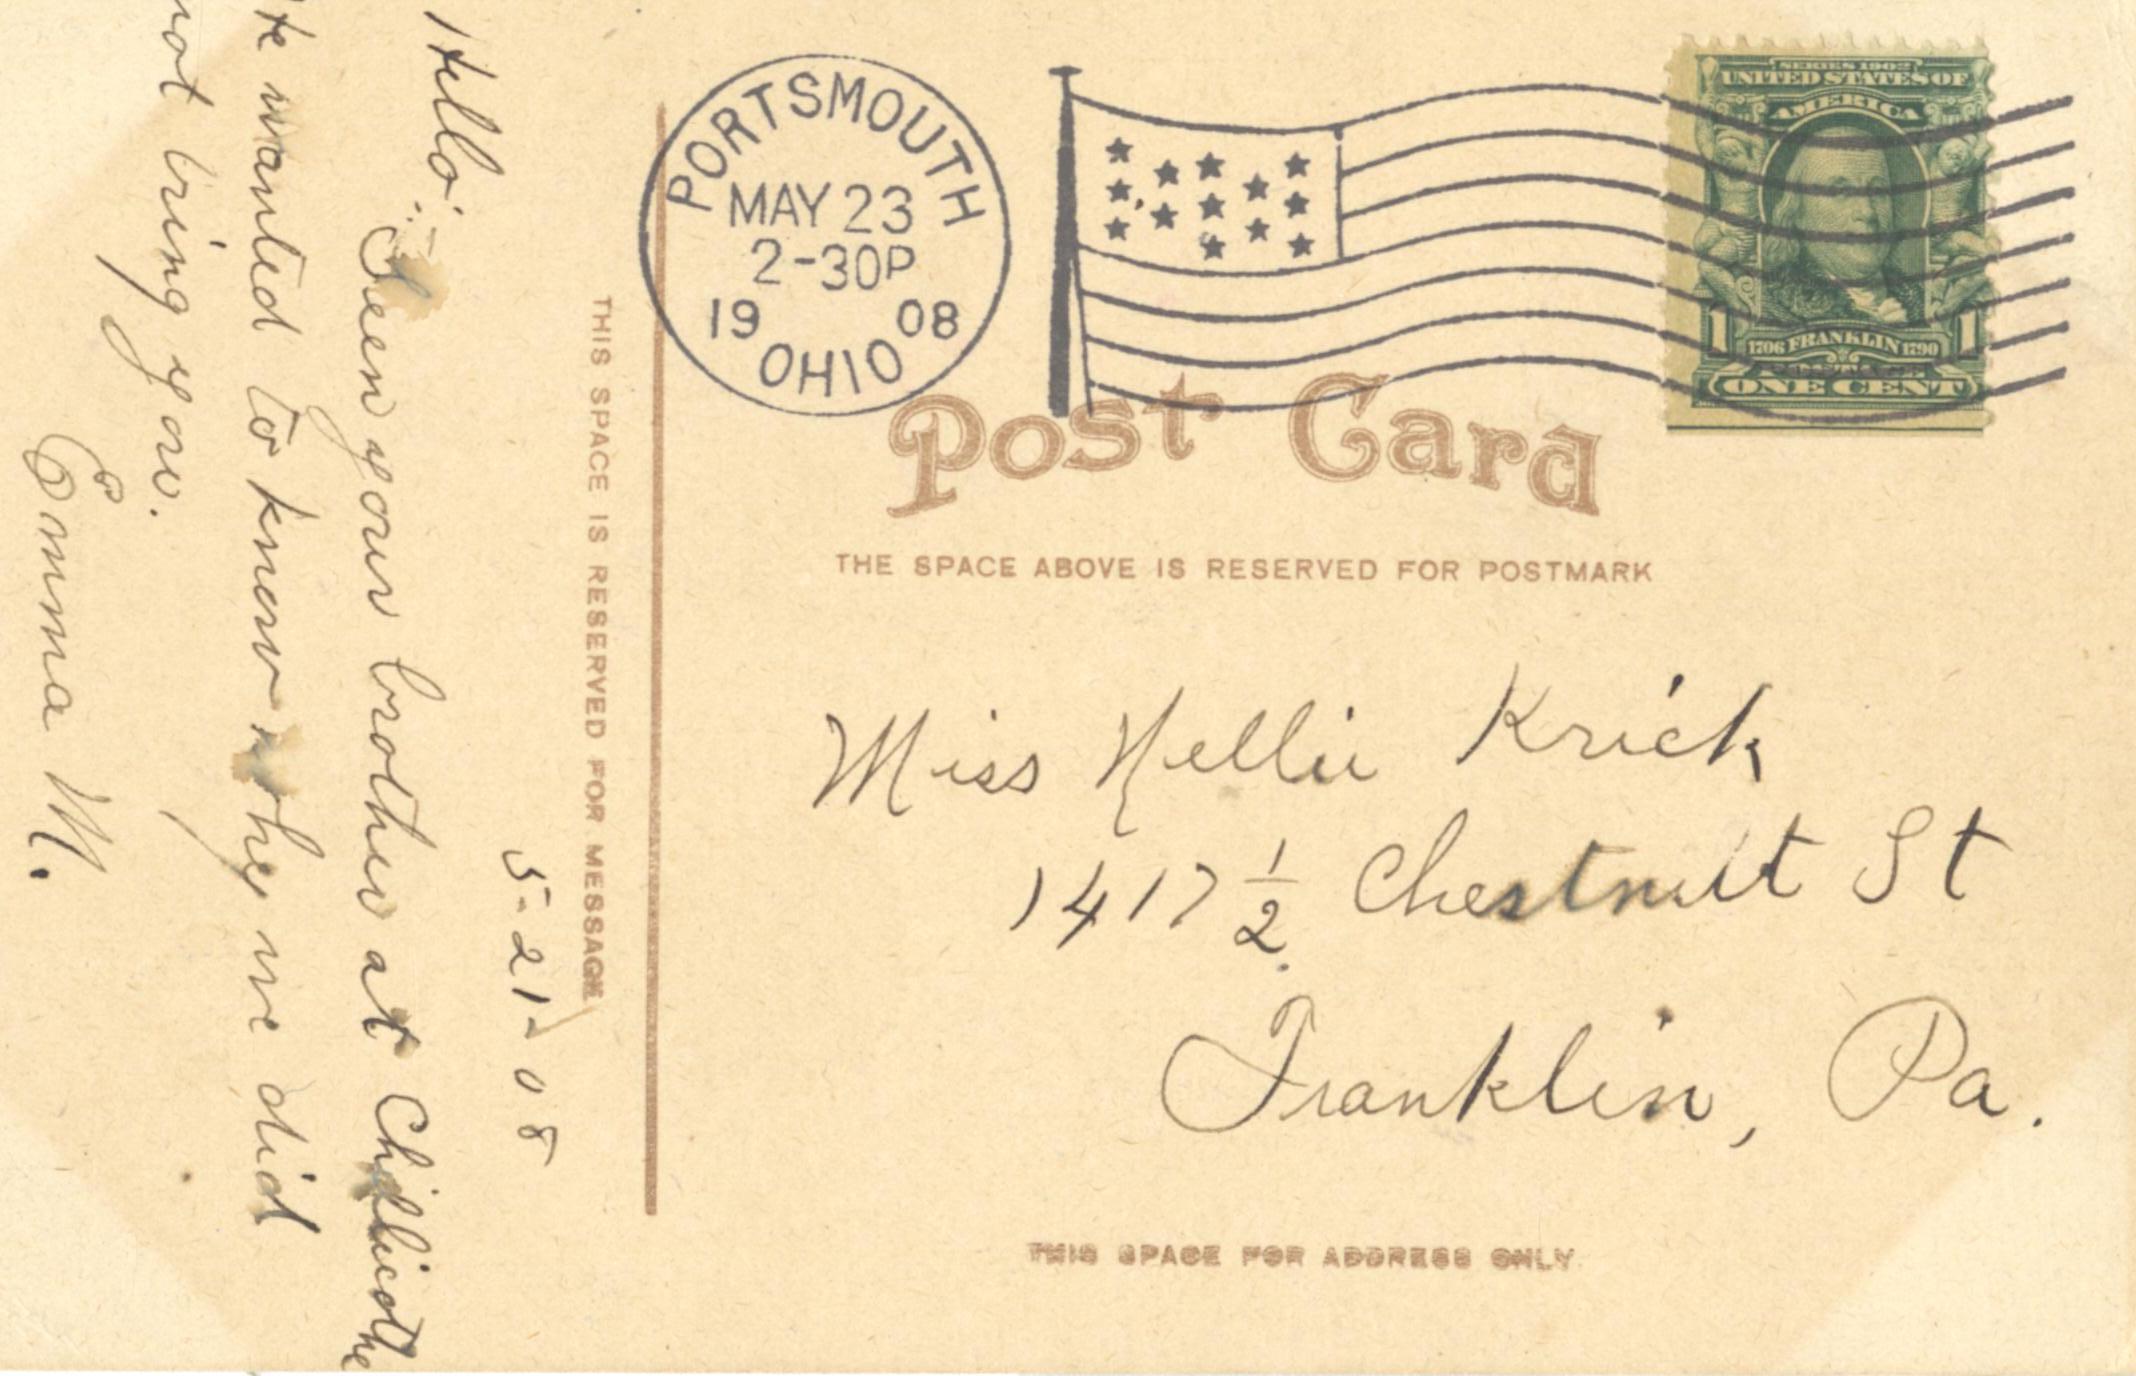 PORTSMOUTH
MAY 23
2-30P
19 08
OHIO
SERIES 1902
UNITED STATES OF
AMERICA
1 1706 FRANKLIN 1790 1
ONE CENT
Post Card
THE SPACE ABOVE IS RESERVED FOR POSTMARK
THIS SPACE IS RESERVED FOR MESSAGE
5-21-08
Hello:
Seen your brother at Chillicothe
He wanted to know why we did
not bring you.
Emma M.
Miss Nellie Krick
1417 1/2 Chestnut St
Franklin, Pa.
THIS SPACE FOR ADDRESS ONLY